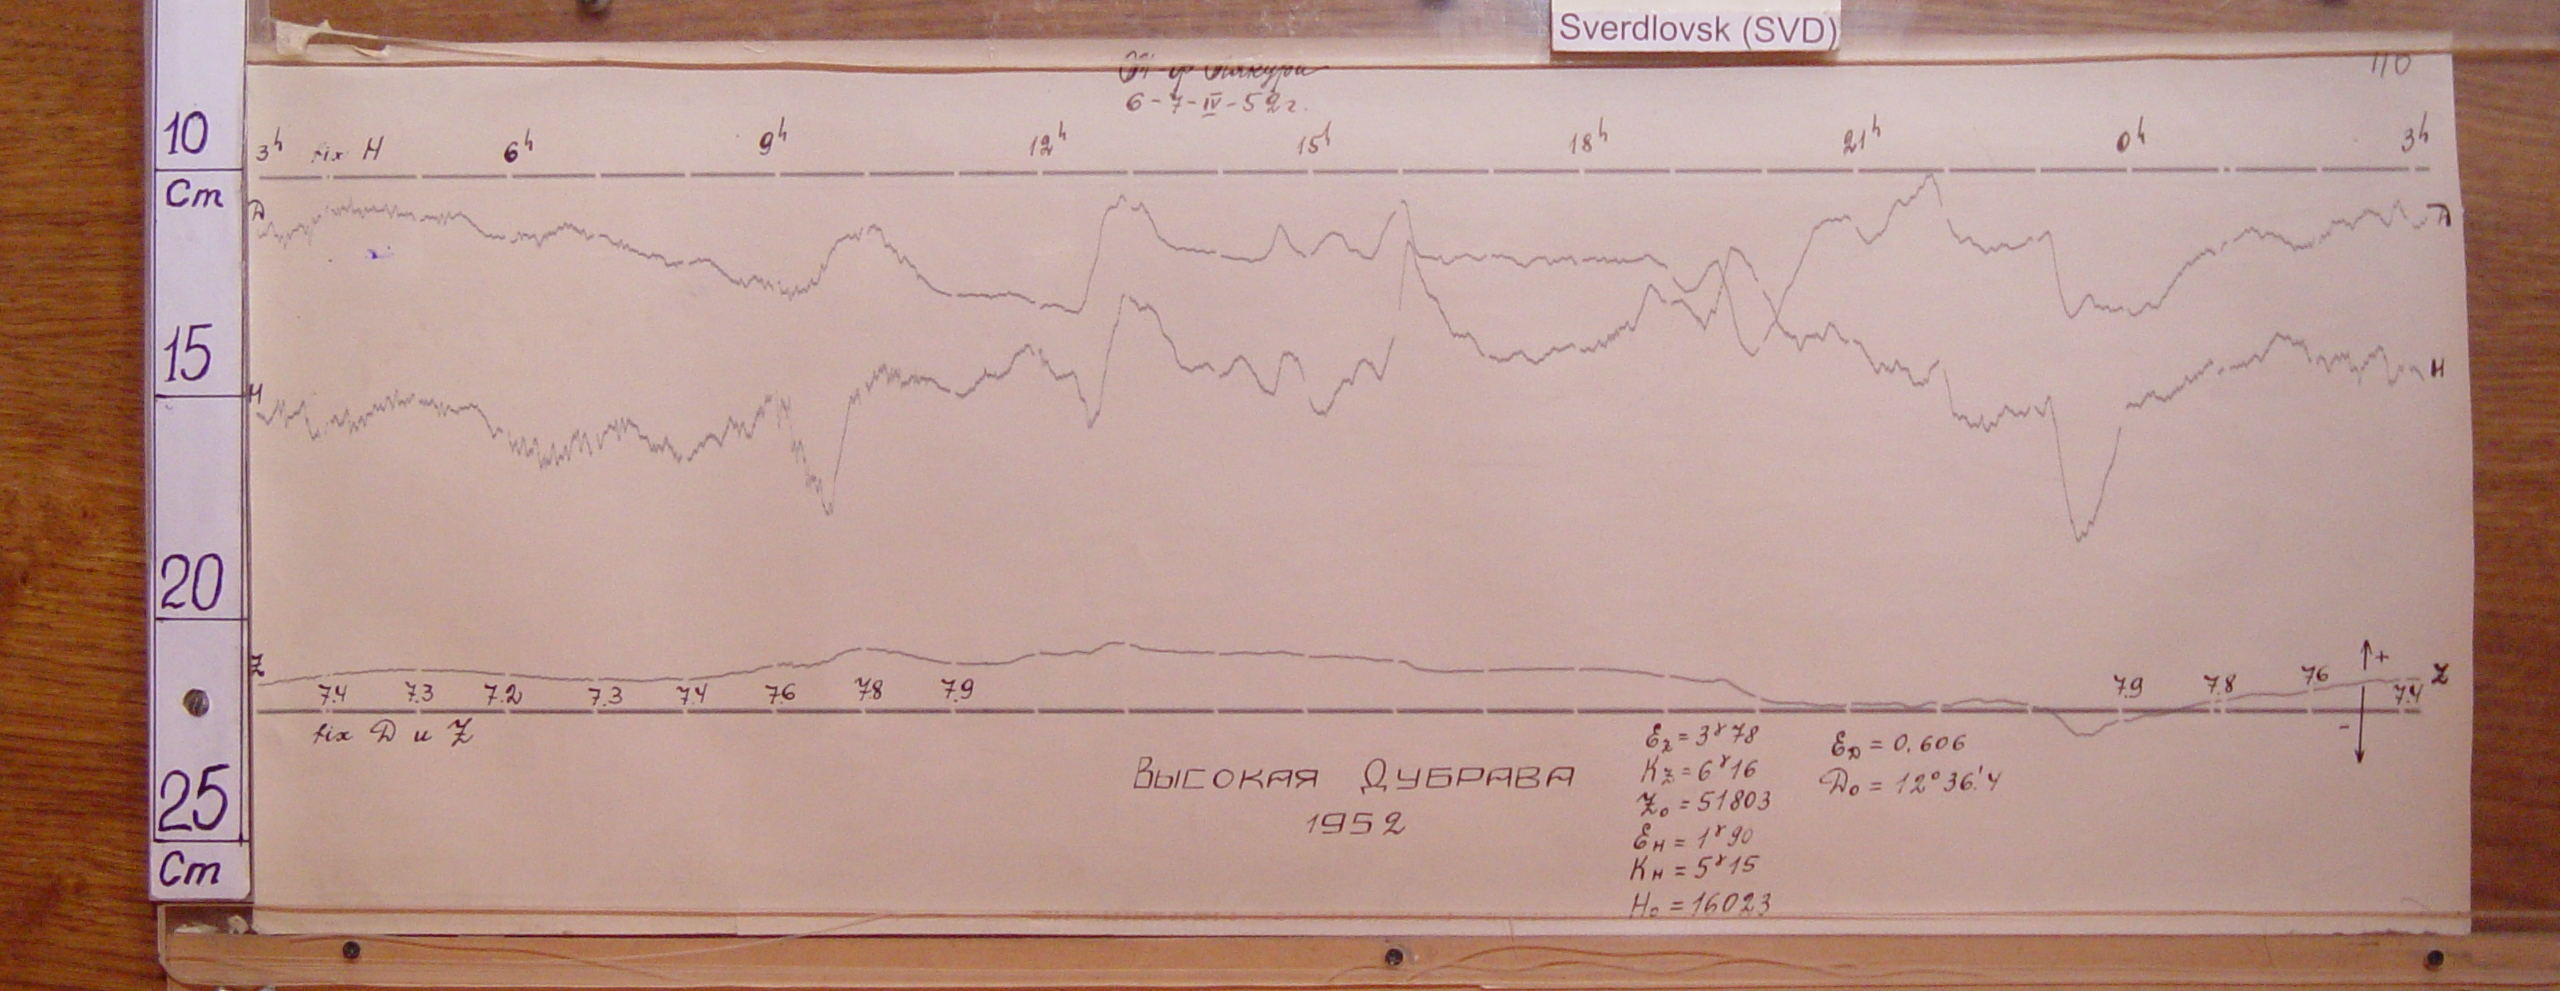 Sverdlovsk (SVD)
6-7-IV-52 г.
10
Cm
15
20
25
Cm
3ʰ fix H 6ʰ 9ʰ 12ʰ 15ʰ 18ʰ 21ʰ 0ʰ 3ʰ
D D
H H
Z Z
7.4 7.3 7.2 7.3 7.4 7.6 7.8 7.9 7.9 7.8 7.6 7.4
+
-
fix D и Z
Высокая Дубрава
1952
Ez = 3ˠ78
Kz = 6ˠ16
Z₀ = 51803
Eн = 1ˠ90
Kн = 5ˠ15
H₀ = 16023
ED = 0,606
D₀ = 12°36'.4